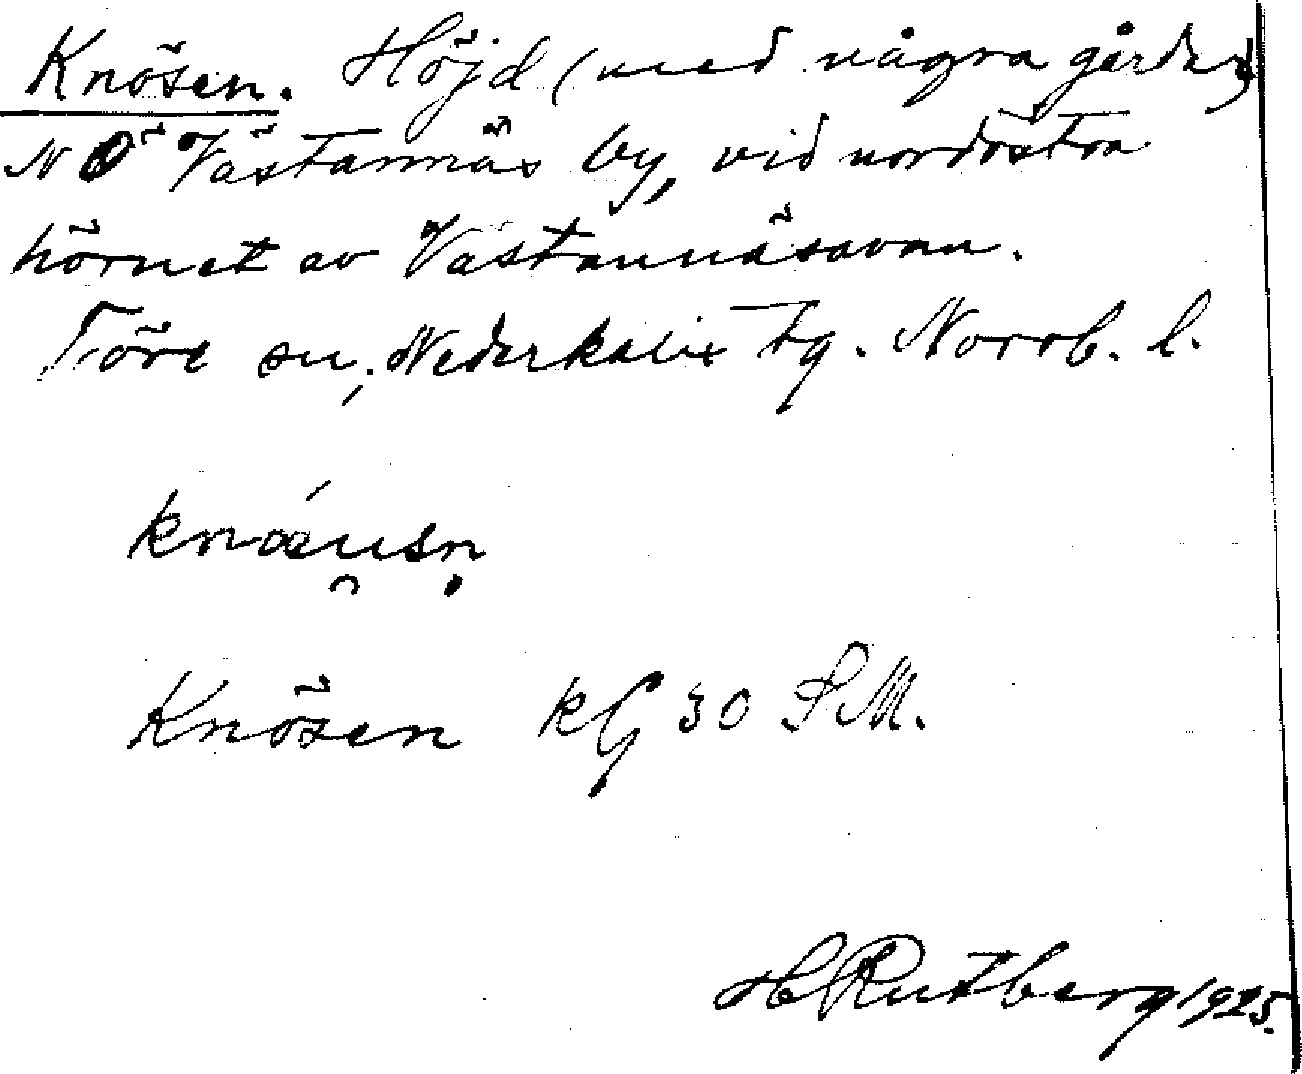 Knösen. Höjd (med några gårdar)
NÖ Västannäs by, vid nordöstra
hörnet av Västannäsavan.
Töre sn, Nederkalix tg. Norrb. l.
Knösen kG 30 SM.
H Rutberg 1925.